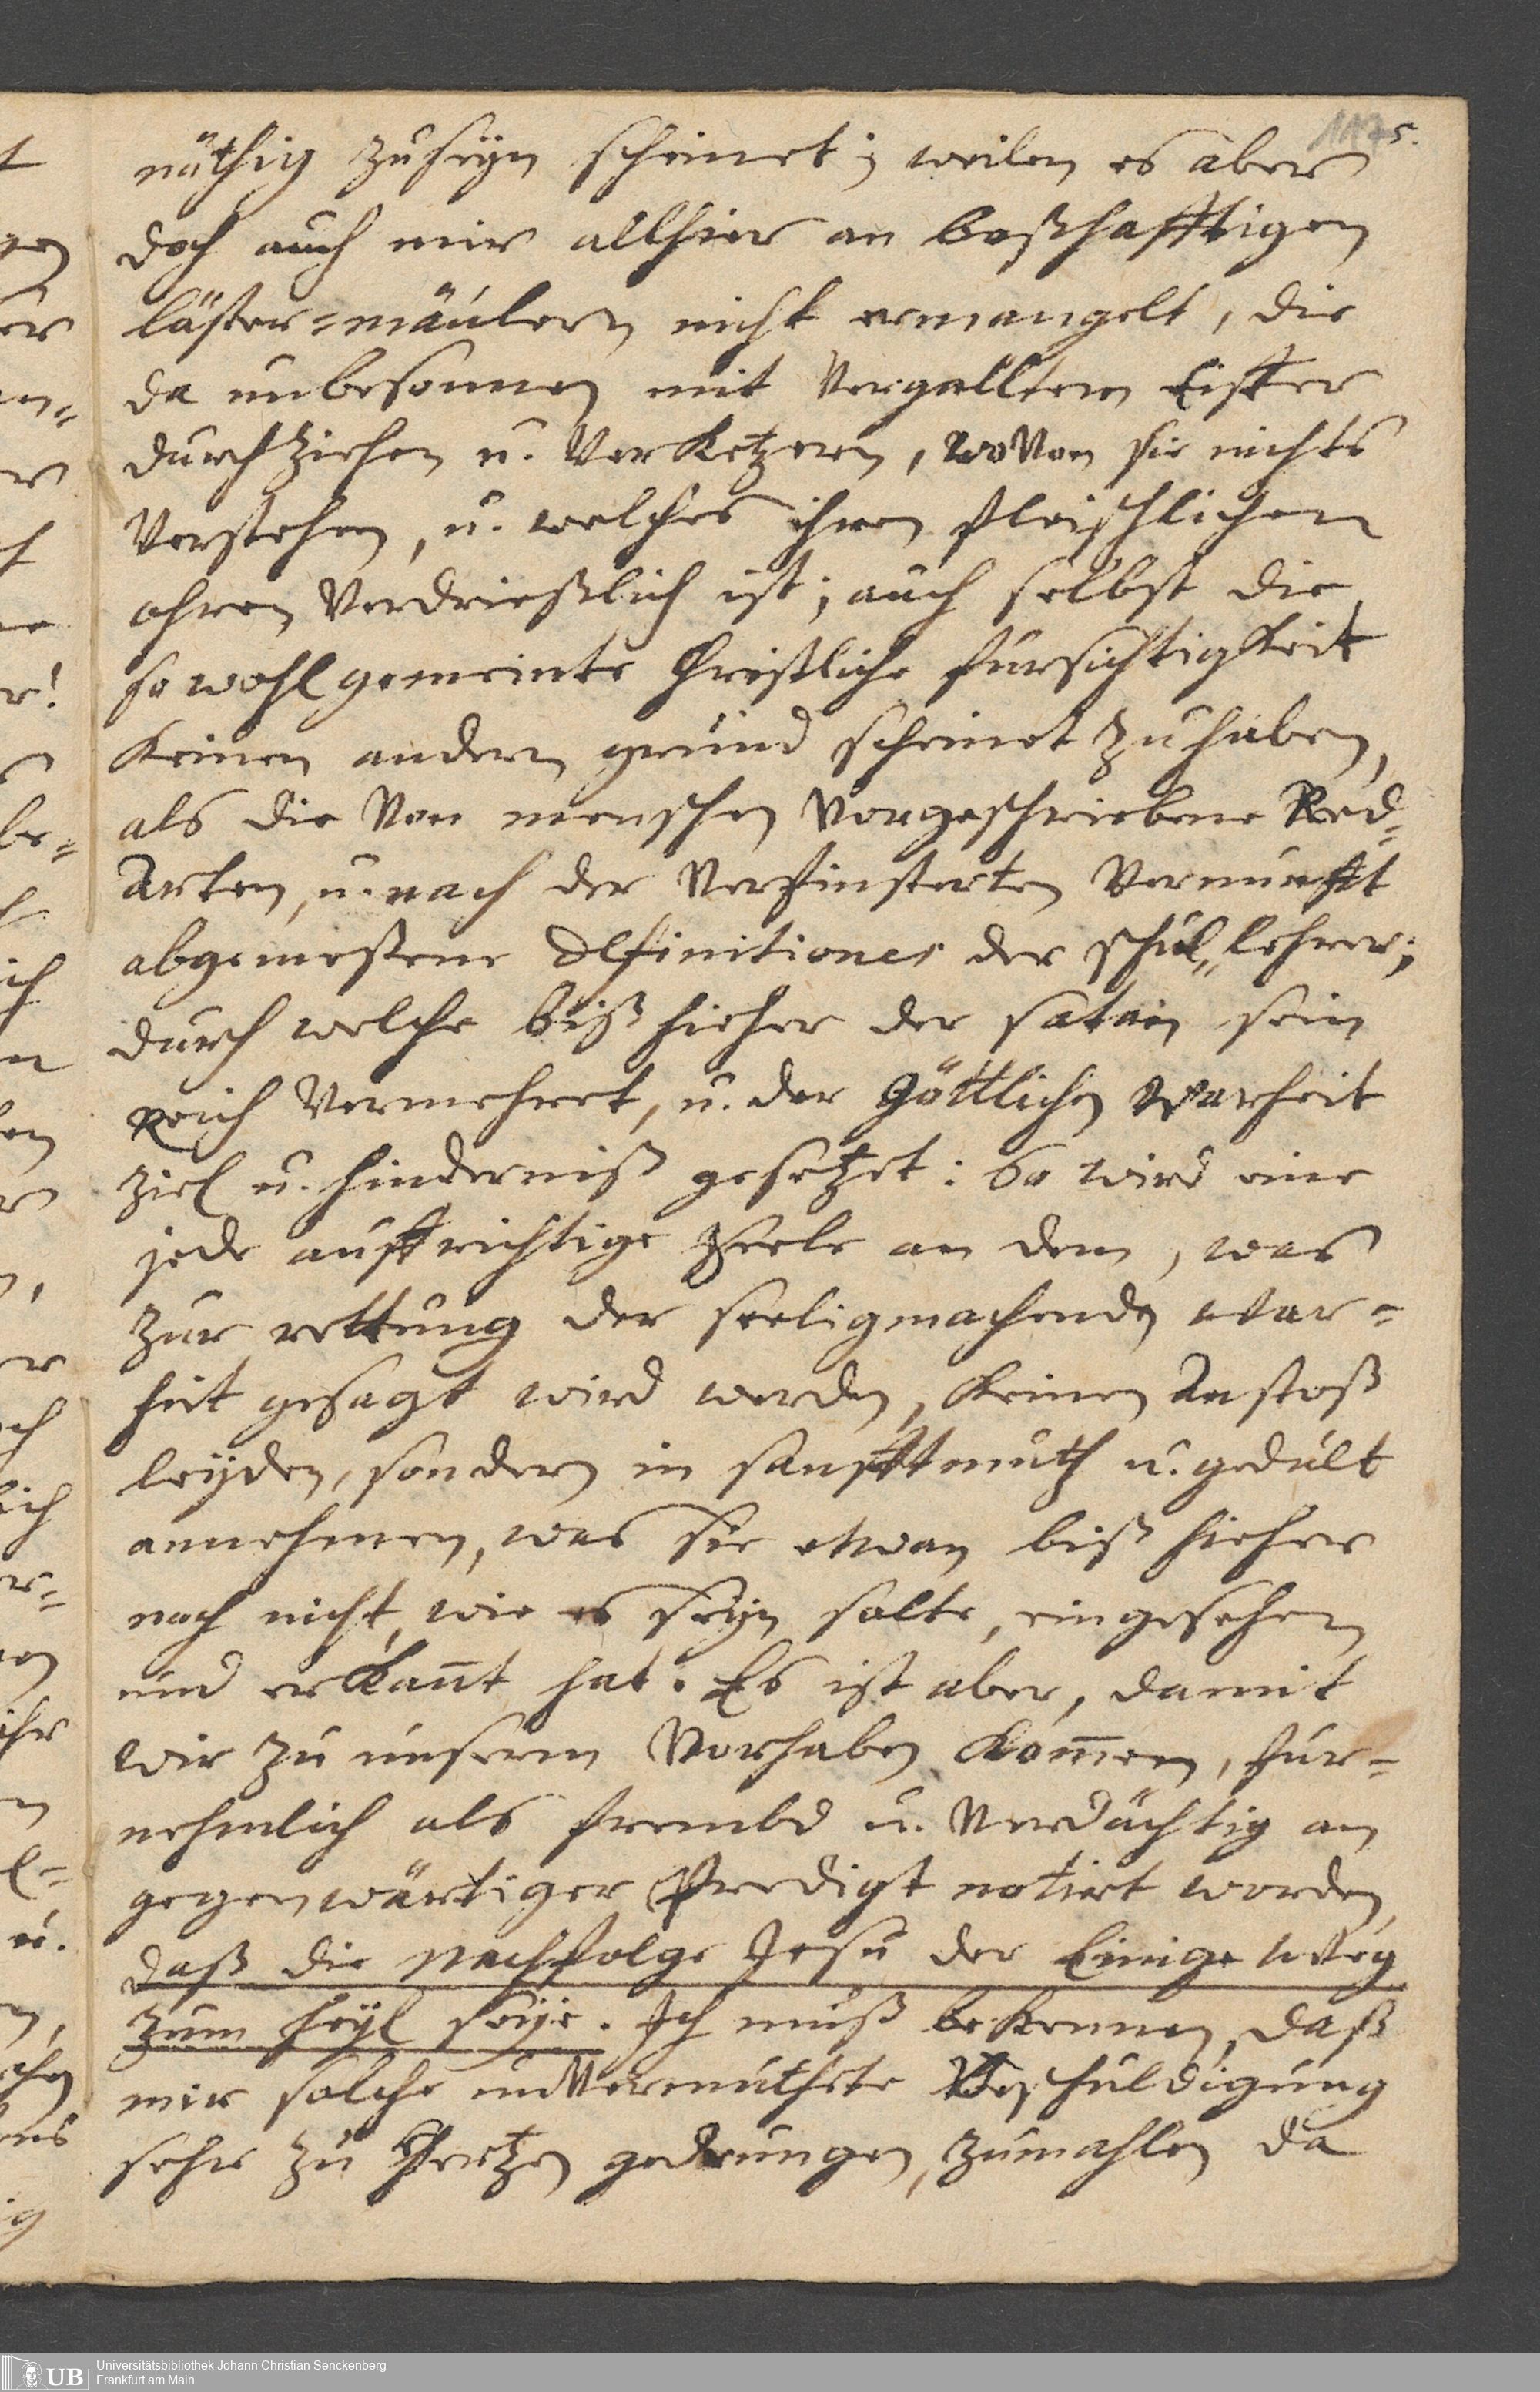 5.
nöthig zuseyn scheinet; weilen es aber
doch auch mir allhier an boßhafftigen
läster=mäulern nicht ermangelt, die
da unbesonnen mit Vergalltem Eiffer
durchziehen u. Verketzern, woVon sie nichts
Verstehen, u. welches ihren fleischlichen
ohren Verdrießlich ist; auch selbst die
so wohlgemeinte Christliche fürsichtigkeit
keinen andern grund scheinet zuhaben,
als die Von menschen Vorgeschriebene Red=
Arten, u. nach der Verfinsterten Vernunfft
abgemeßene Definitiones der schul„lehrer;
durch welche bißhieher der satan sein
Reich Vermehret, u. der göttlichen Warheit
ziel u. hinderniß gesetzet: So wird eine
jede auffrichtige Seele an dem, was
zur rettung der seeligmachenden War=
heit gesagt wird werden, keinen Anstoß
leyden, sondern in sanfftmuth u. gedult
annehmen, was sie etwan biß hieher
noch nicht, wie es seyn solte, eingesehen
und erkan̄t hat. Es ist aber, damit
wir zu unserm Vorhaben kom̄en, für=
nehmlich als frembd u. Verdächtig an
gegenwärtiger Predigt notirt worden,
daß die Nachfolge Jesu der Einige Weg
zum heyl seye. Ich muß bekennen, daß
mir solche unVermuthete Beschuldigung
sehr zu Hertzen gedrungen, zumahlen da
UB Universitätsbibliothek Johann Christian Senckenberg
Frankfurt am Main